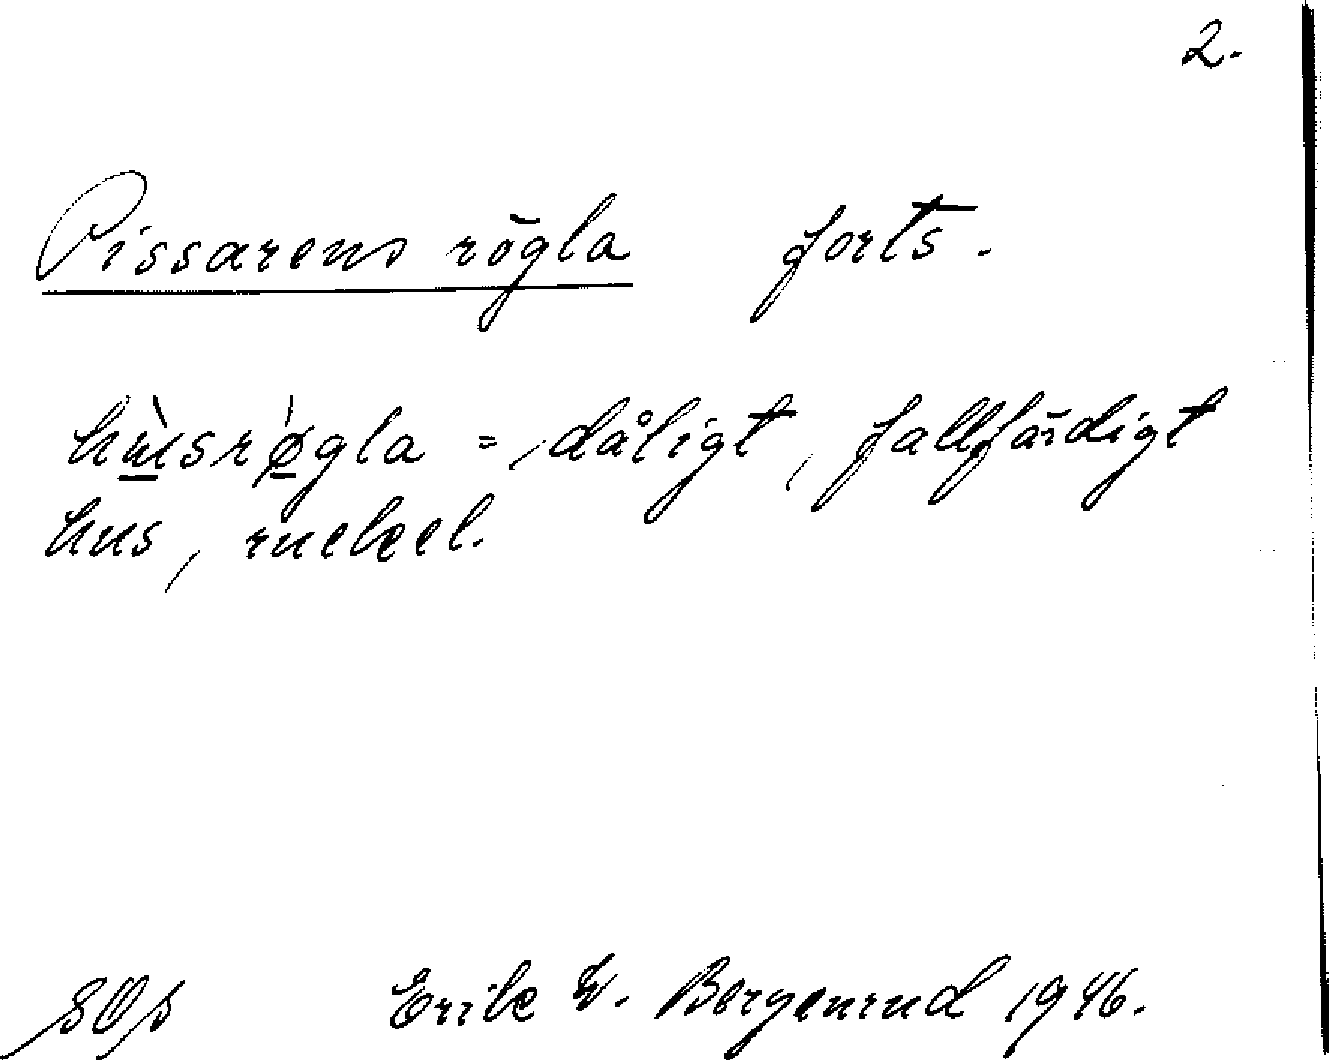 2.
Pissarens rögla forts.
hùsrøgla = dåligt, fallfärdigt
hus, ruckel.
Erik W. Bergenrud 1946.